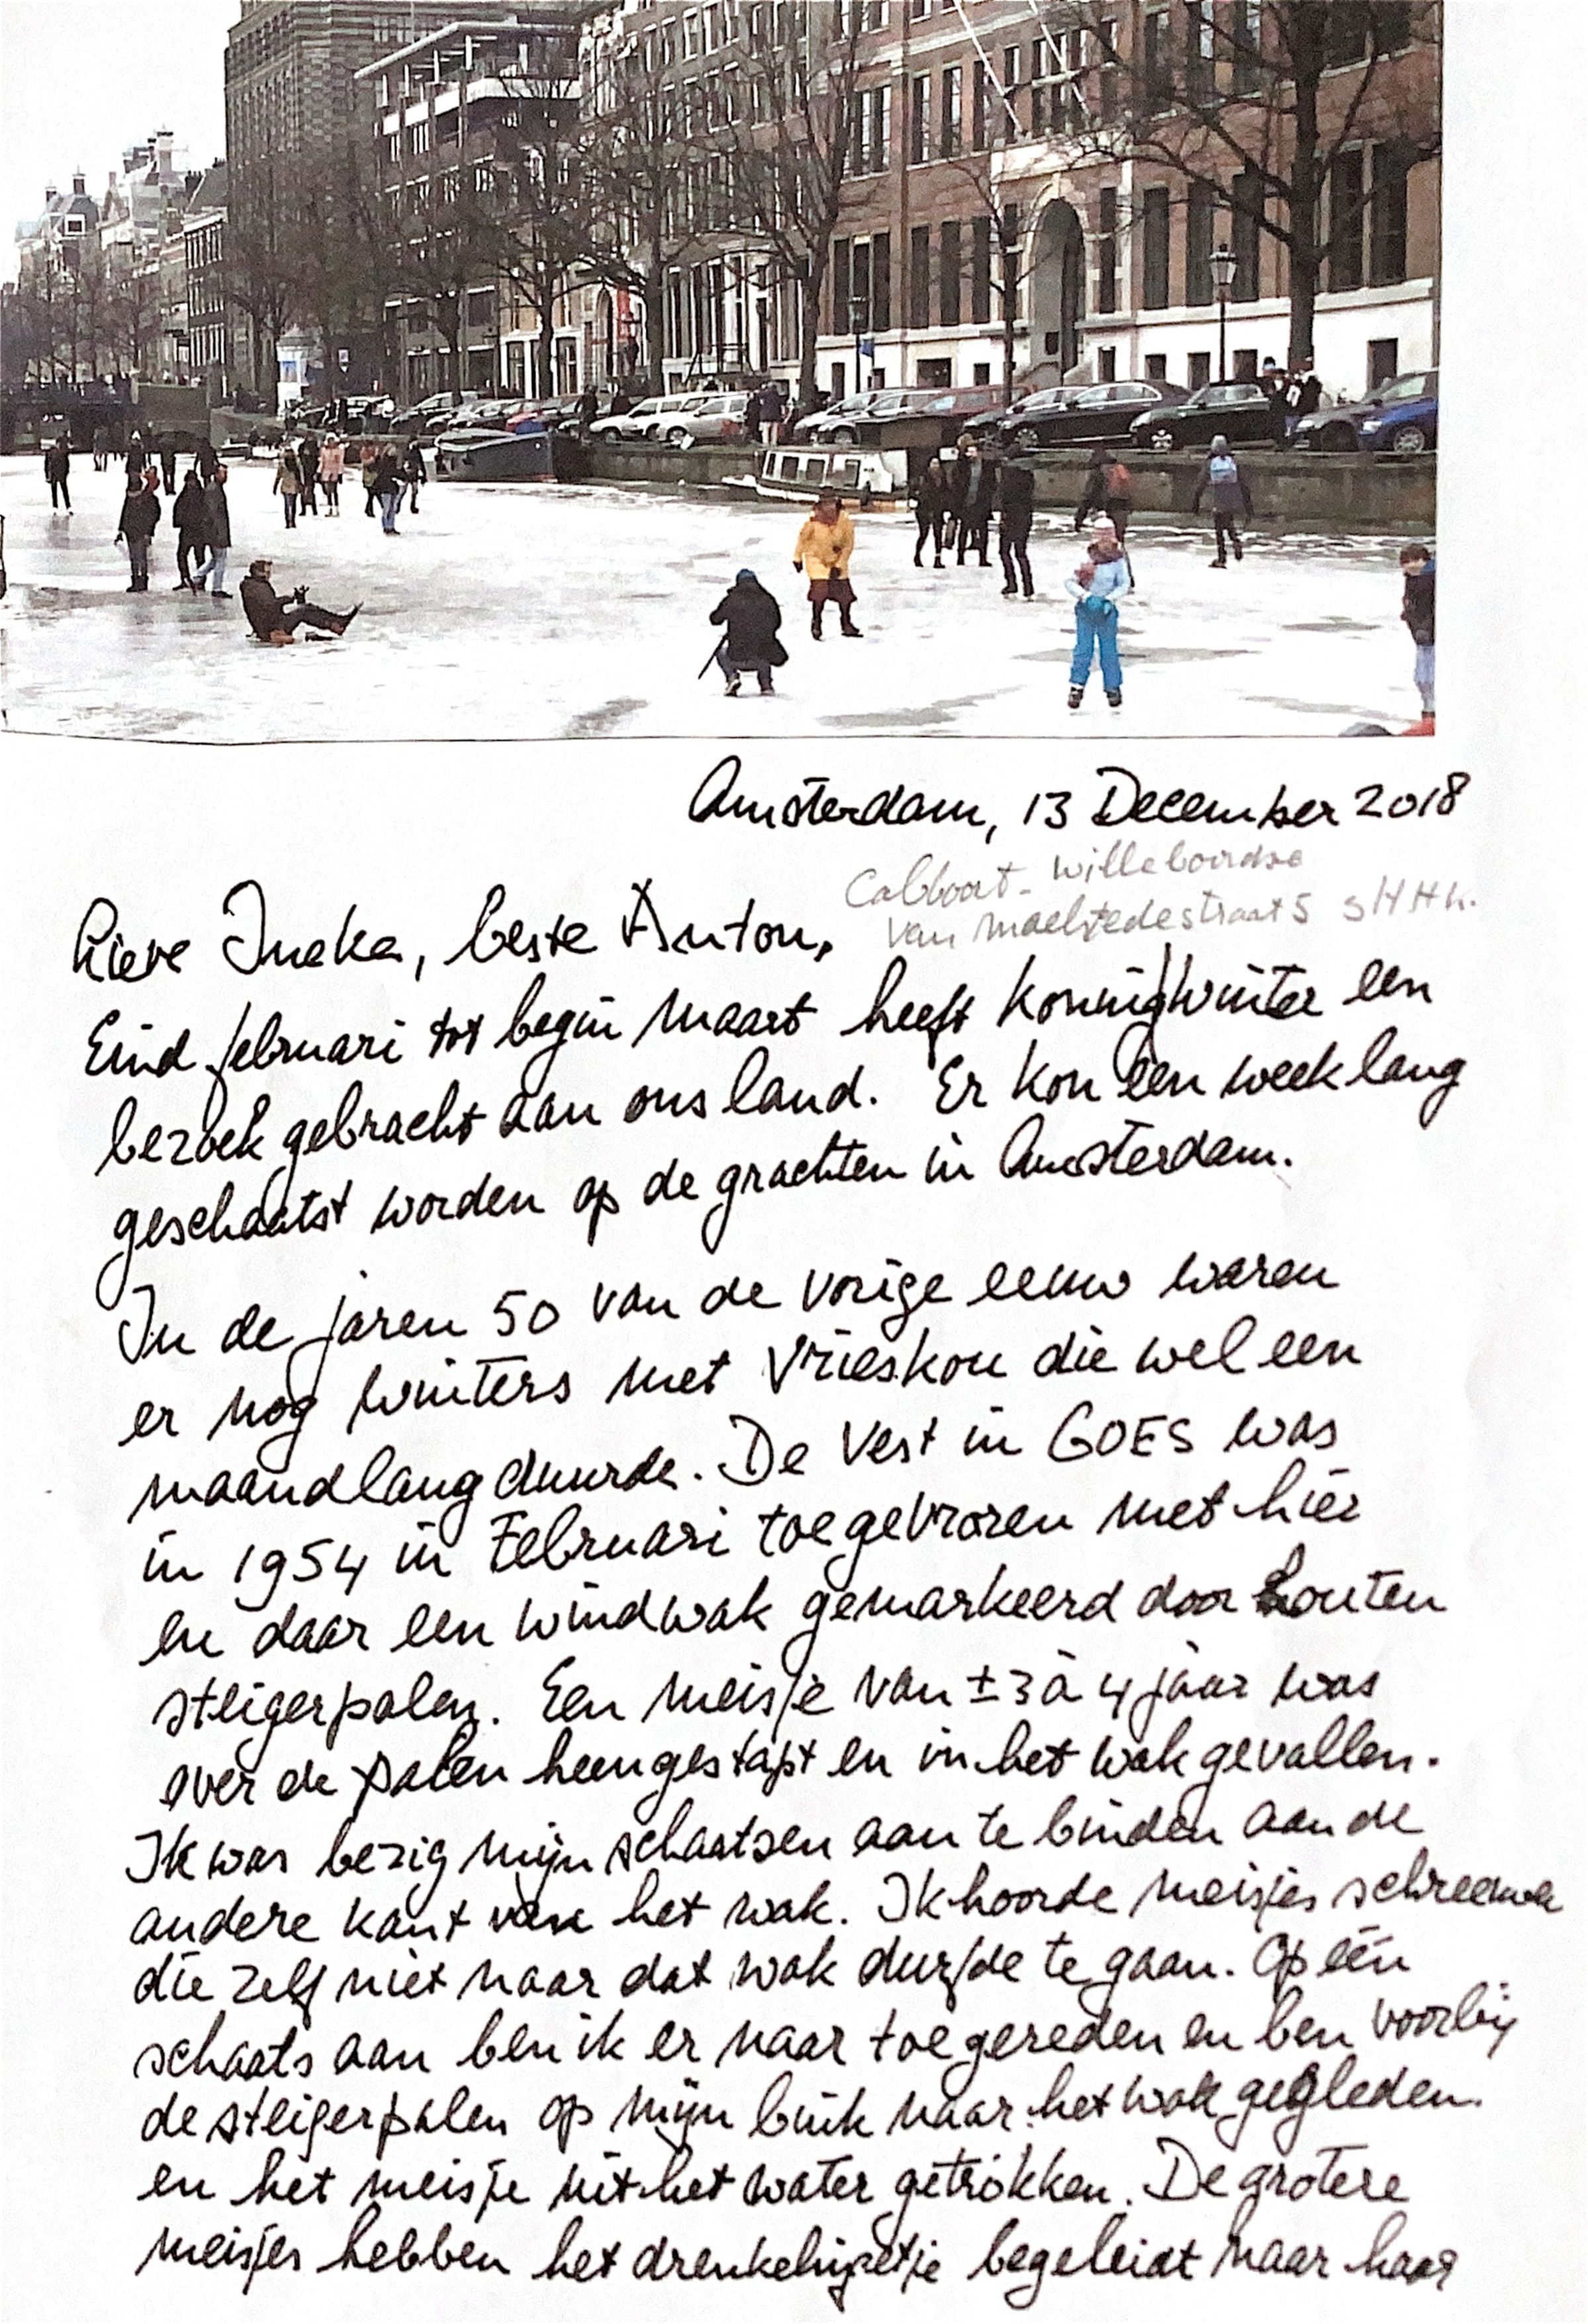 Amsterdam, 13 December 2018
Calboat - Willeboordse
van Maelstedestraat 5 sHHK.
Lieve Ineke, beste Anton,
Eind februari tot begin maart heeft koning winter een
bezoek gebracht aan ons land. Er kon een week lang
geschaatst worden op de grachten in Amsterdam.
In de jaren 50 van de vorige eeuw waren
er nog winters met vrieskou die wel een
maand lang duurde. De Vest in GOES was
in 1954 in Februari toegevroren met hier
en daar een windwak gemarkeerd door houten
steigerpalen. Een meisje van ± 3 à 4 jaar was
over de palen heengestapt en in het wak gevallen.
Ik was bezig mijn schaatsen aan te binden aan de
andere kant van het wak. Ik hoorde meisjes schreeuwen
die zelf niet naar dat wak durfde te gaan. Op één
schaats aan ben ik er naar toe gereden en ben voorbij
de steigerpalen op mijn buik naar het wak gegleden.
en het meisje uit het water getrokken. De grotere
meisjes hebben het drenkelingetje begeleidt naar haar